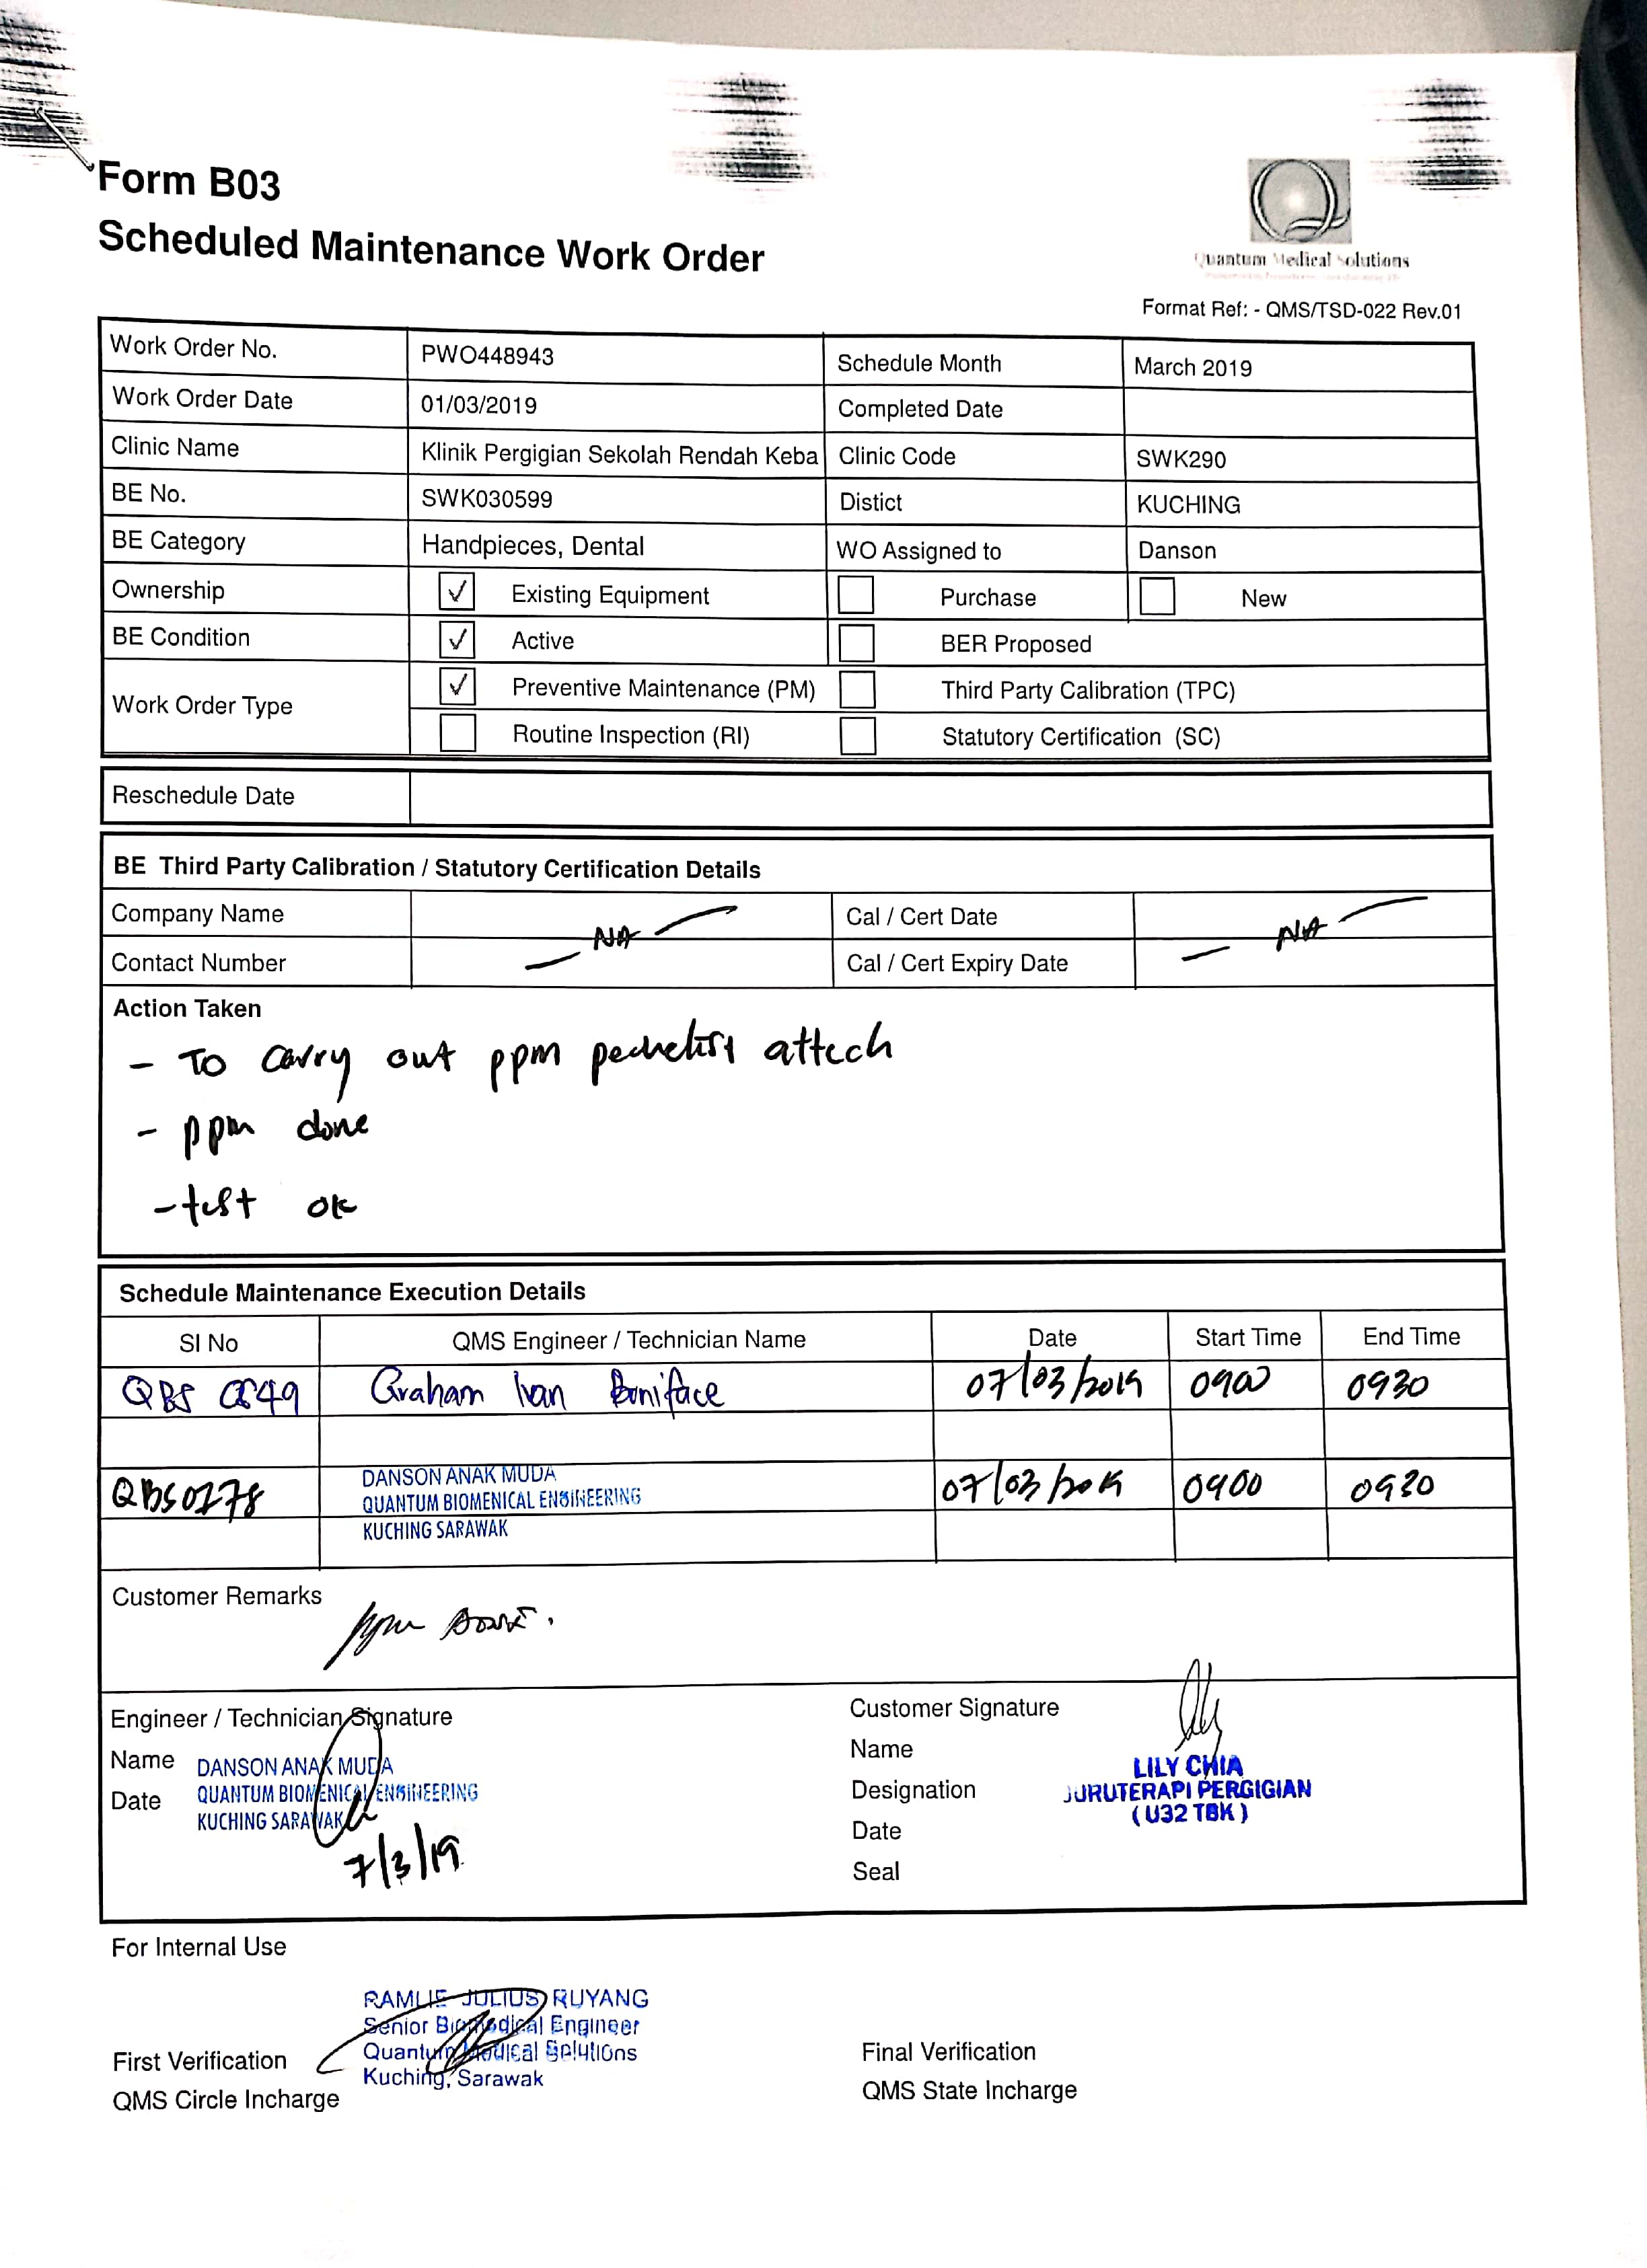 Form B03
Scheduled Maintenance Work Order
Quantum Medical Solutions
Format Ref: - QMS/TSD-022 Rev.01
Work Order No. PWO448943 Schedule Month March 2019
Work Order Date 01/03/2019 Completed Date
Clinic Name Klinik Pergigian Sekolah Rendah Keba Clinic Code SWK290
BE No. SWK030599 Distict KUCHING
BE Category Handpieces, Dental WO Assigned to Danson
Ownership ✓ Existing Equipment Purchase New
BE Condition ✓ Active BER Proposed
Work Order Type ✓ Preventive Maintenance (PM) Third Party Calibration (TPC)
Routine Inspection (RI) Statutory Certification (SC)
Reschedule Date
BE Third Party Calibration / Statutory Certification Details
Company Name Cal / Cert Date
NA NA
Contact Number Cal / Cert Expiry Date
Action Taken
- To carry out ppm attech
- ppm done
- test ok
Schedule Maintenance Execution Details
SI No QMS Engineer / Technician Name Date Start Time End Time
QBS Graham Ivan Boniface 07/03/2019 0900 0930
QBS0278 DANSON ANAK MUDA 07/03/2019 0900 0930
QUANTUM BIOMENICAL ENGINEERING
KUCHING SARAWAK
Customer Remarks
ppm Done.
Engineer / Technician Signature Customer Signature
Name DANSON ANAK MUDA Name LILY CHIA
Date QUANTUM BIOMENICAL ENGINEERING Designation JURUTERAPI PERGIGIAN
KUCHING SARAWAK Date (U32 TBK)
7/3/19 Seal
For Internal Use
RAMLIE JULIUS RUYANG
Senior Biomedical Engineer
First Verification Quantum Medical Solutions Final Verification
Kuching, Sarawak
QMS Circle Incharge QMS State Incharge